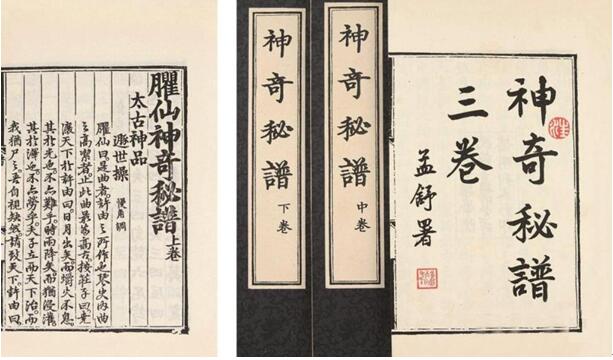 神奇秘譜
三卷
孟舒署
神奇秘譜 中卷
神奇秘譜 下卷
臞仙神奇秘譜 上卷
太古神品
遯世操 慢角調
臞仙曰是曲者許由之所作也琴史內曲
之高潔者止此曲最為高古按莊子曰堯
讓天下於許由曰日月出矣而爝火不息
其於光也不亦難乎時雨降矣而猶浸灌
其於澤也不亦勞乎夫子立而天下治而
我猶尸之吾自視缺然請致天下許由曰